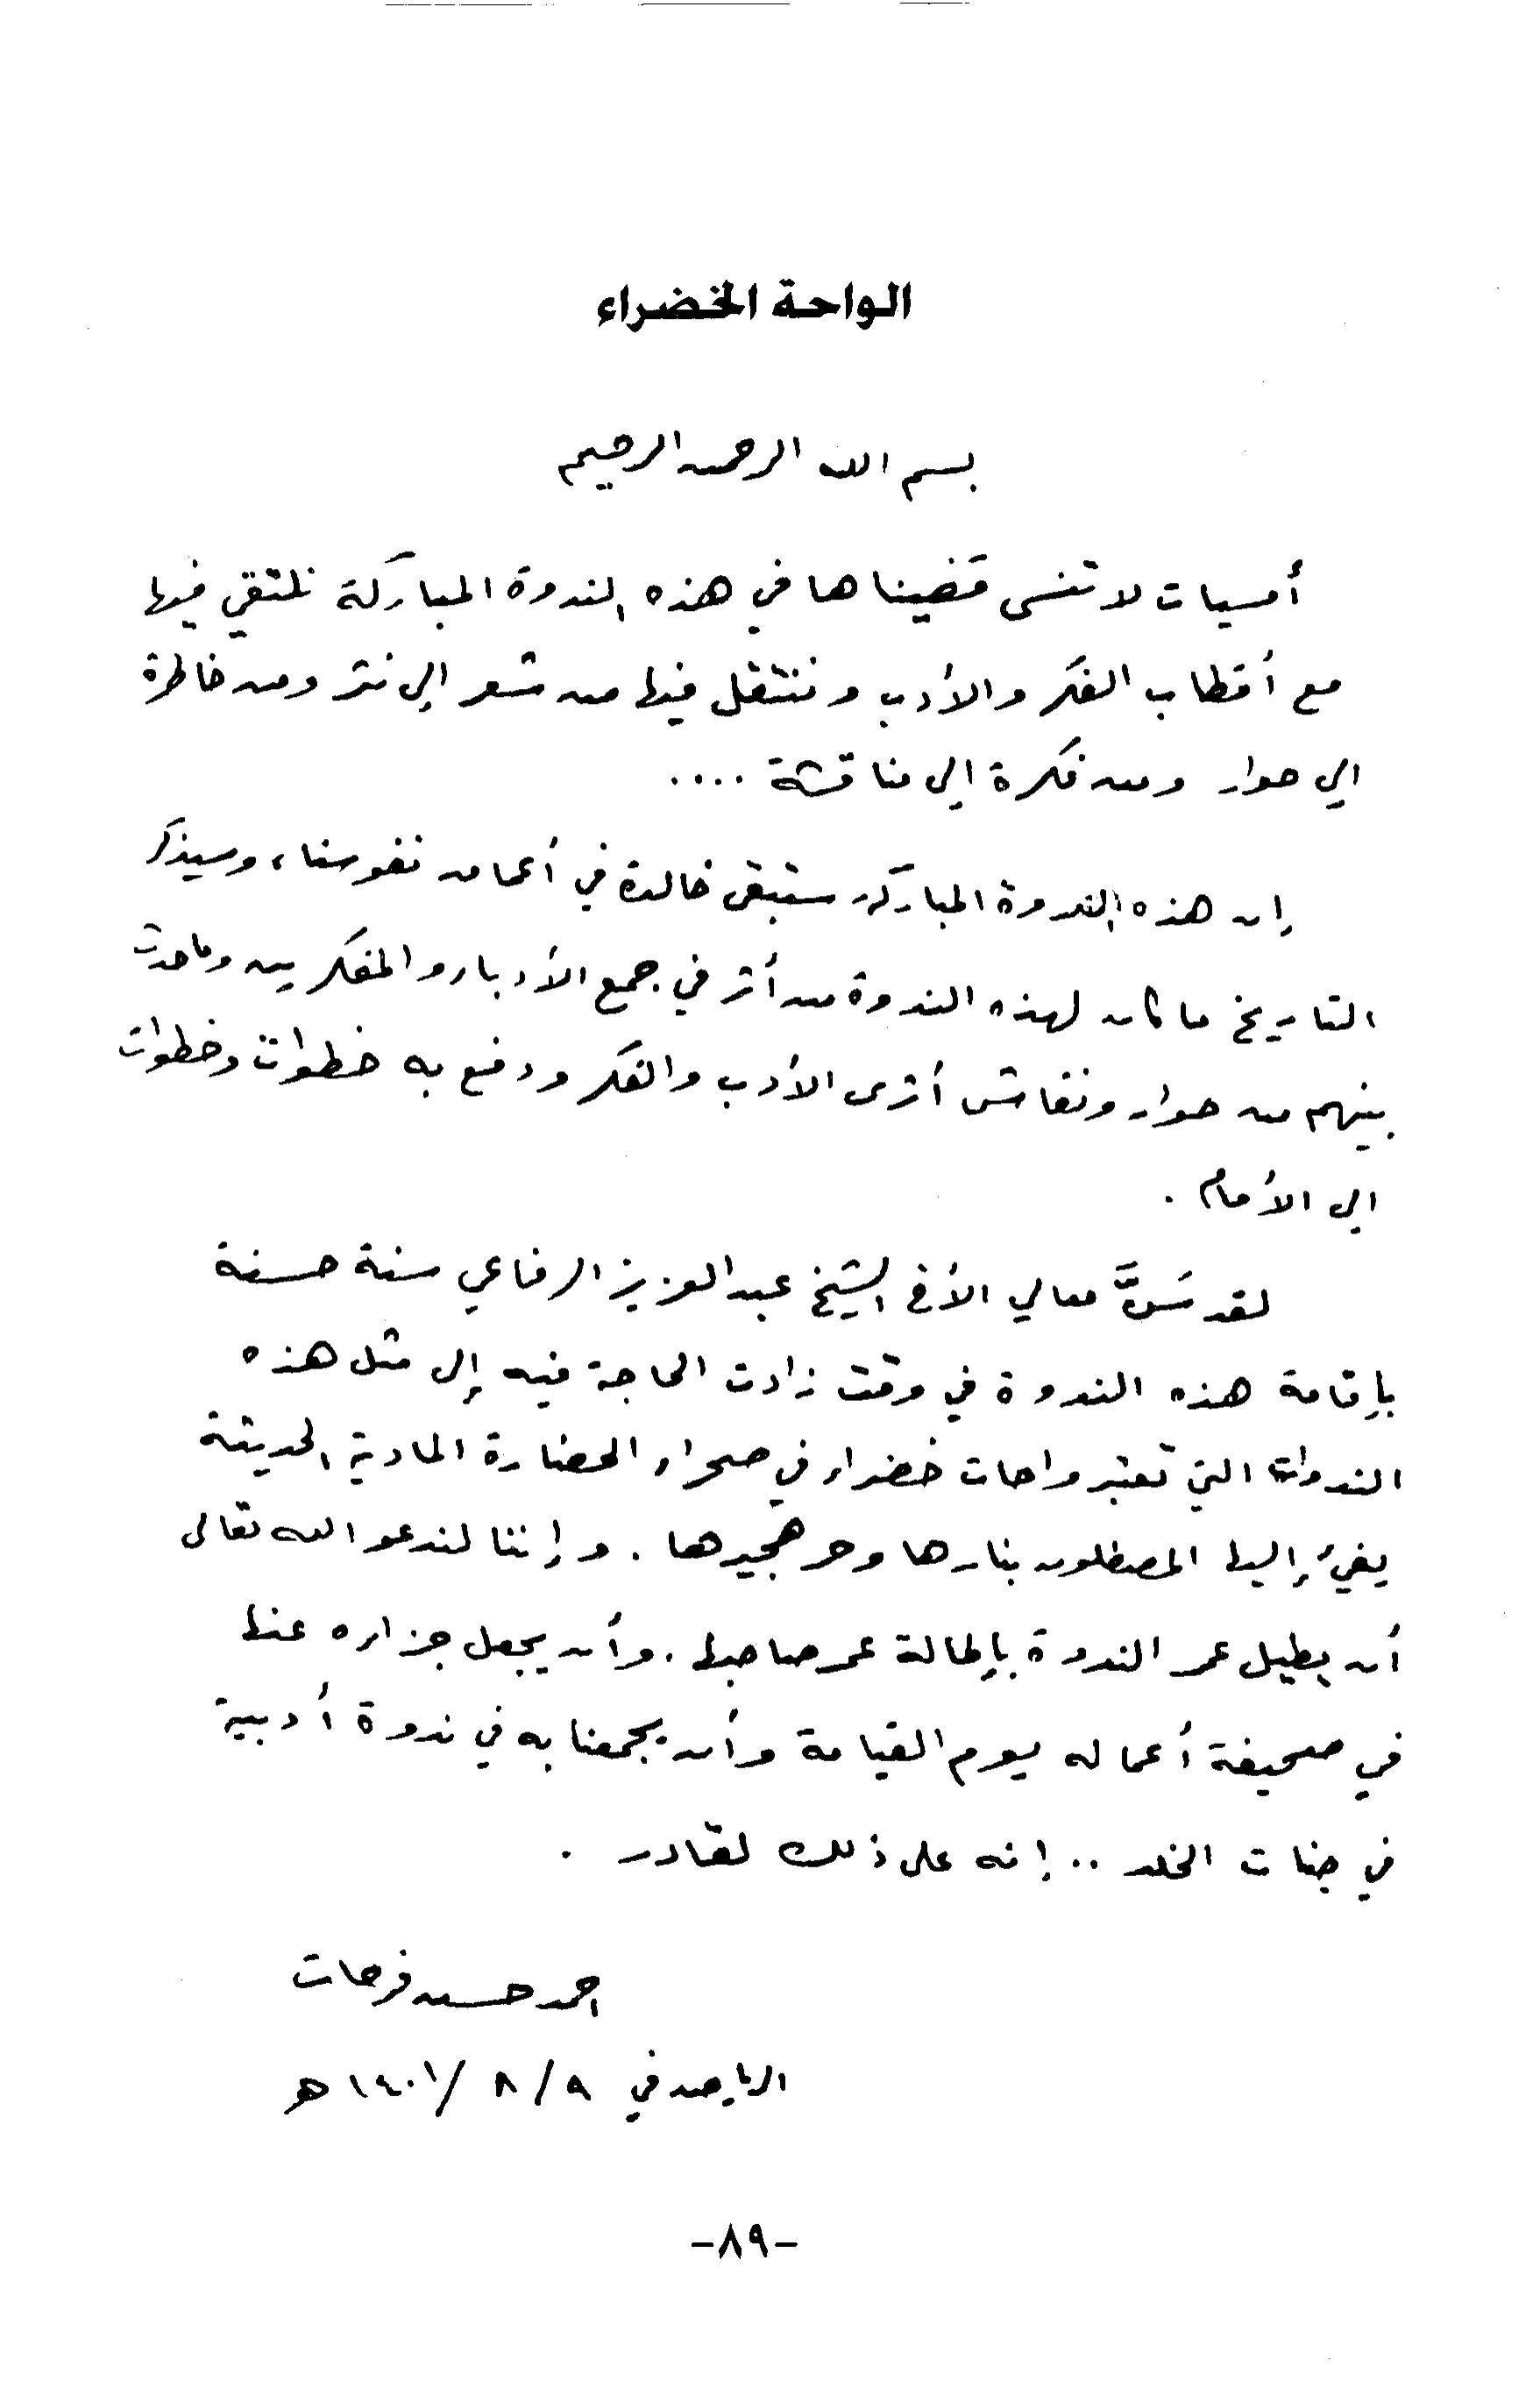 الواحة الخضراء
بسم الله الرحمن الرحيم
أمسيات لا تنسى قضيناها في هذه الندوة المباركة نلتقي فيها
مع أقطاب الفكر والأدب وننتقل فيها من شعر إلى نثر ومن خاطرة
الى حوار ومن فكرة إلى مناقشة ....
إن هذه الندوة المباركة ستبقى خالدة في أعماق نفوسنا، وسيذكر
التاريخ ما كان لهذه الندوة من أثر في جمع الأدباء والمفكرين وما حدث
بينهم من حوار ونقاش أثرى الأدب والفكر ودفع به خطوات وخطوات
الى الأمام .
لقد سَنَّ معالي الأخ الشيخ عبد العزيز الرفاعي سنة حسنة
بإقامة هذه الندوة في وقت زادت الحاجة فيه إلى مثل هذه
الندوات التي تعتبر واحات خضراء في صحراء الحضارة المادية الحديثة
يفيء إليها المصطلون بنارها وحر هجيرها . وإننا لندعو الله تعالى
أن يطيل عمر الندوة بإطالة عمر صاحبها . وأن يجعل جزاءه عنها
في صحيفة أعماله يوم القيامة وأن يجمعنا به في ندوة أدبية
في جنات الخلد .. إنه على ذلك لقادر .
احمد حسن فرحات
الرياض في ٩ / ٨ / ١٤٠١ هـ
-٨٩-